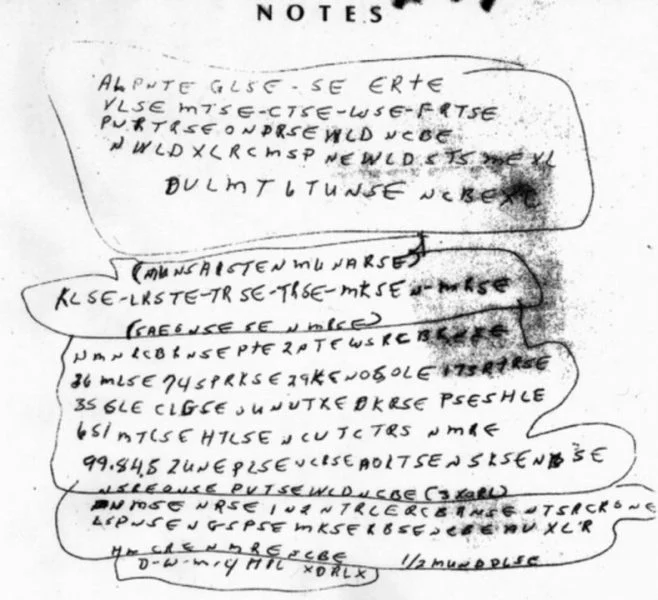 NOTES
ALPNTE GLSE-SE ERTE
VLSE MTSE-CTSE-WSE-FRTSE
PNRTRSEONDRSEWLD NCBE
NWLDXLRCMSP NEWLDSTS MEXL
DULMT6TUNSE NCBEXC
(MUNSAISTENMUNARSE)
KLSE-LRSTE-TRSE-TRSE-MKSEN-MRSE
(SAEGNSE SE NMRSE)
NMNRCBRNSEPTE2PTEWSRCBRNSE
36MLSE74SPRKSE29KENOSOLE173RTRSE
35GLE CLGSE UNUTXE DKRSE PSESHLE
651MTCSE HTLSE NCUTCTRS NMRE
99.84.5 2UNEPLSE NCRSEAOLTSENSKSENBSE
NSREONSE PUTSEWLDNCBE (3XORL)
NMSE NRSE IN2NTRLERCBRNSENTSRCRONE
LSPNSENGSPSE MKSERBSENCBEAUXLR
HMCRENMRENCBE 1/2MUNDDLSE
D-W-M-4 MIL XDRLX